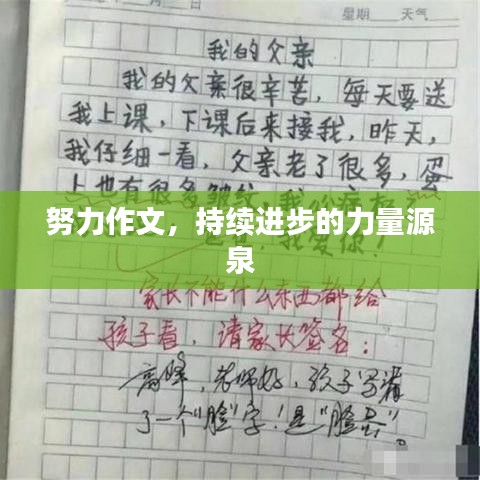 星期 天气
我的父亲
我的父亲很辛苦，每天要送
我上课，下课后来接我，昨天，
我仔细一看，父亲老了很多，蛋
上也有很多皱纹，我
努力作文，持续进步的力量源
泉
我爱你！
家长不能什么东西都给
孩子看，请家长签名：
高峰，老师好，孩子写漏
了一个“脸”字！是“脸蛋”